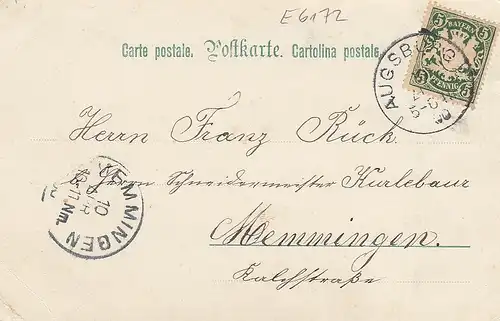 E6172
Carte postale. Postkarte. Cartolina postale.
BAYERN
5 5
5 PFENNIG 5
AUGSBURG
Herrn Franz Rück
b. Herrn Schneidermeister Kurlebaur
MEMMINGEN
10
Nm.
Memmingen.
Kalchstraße